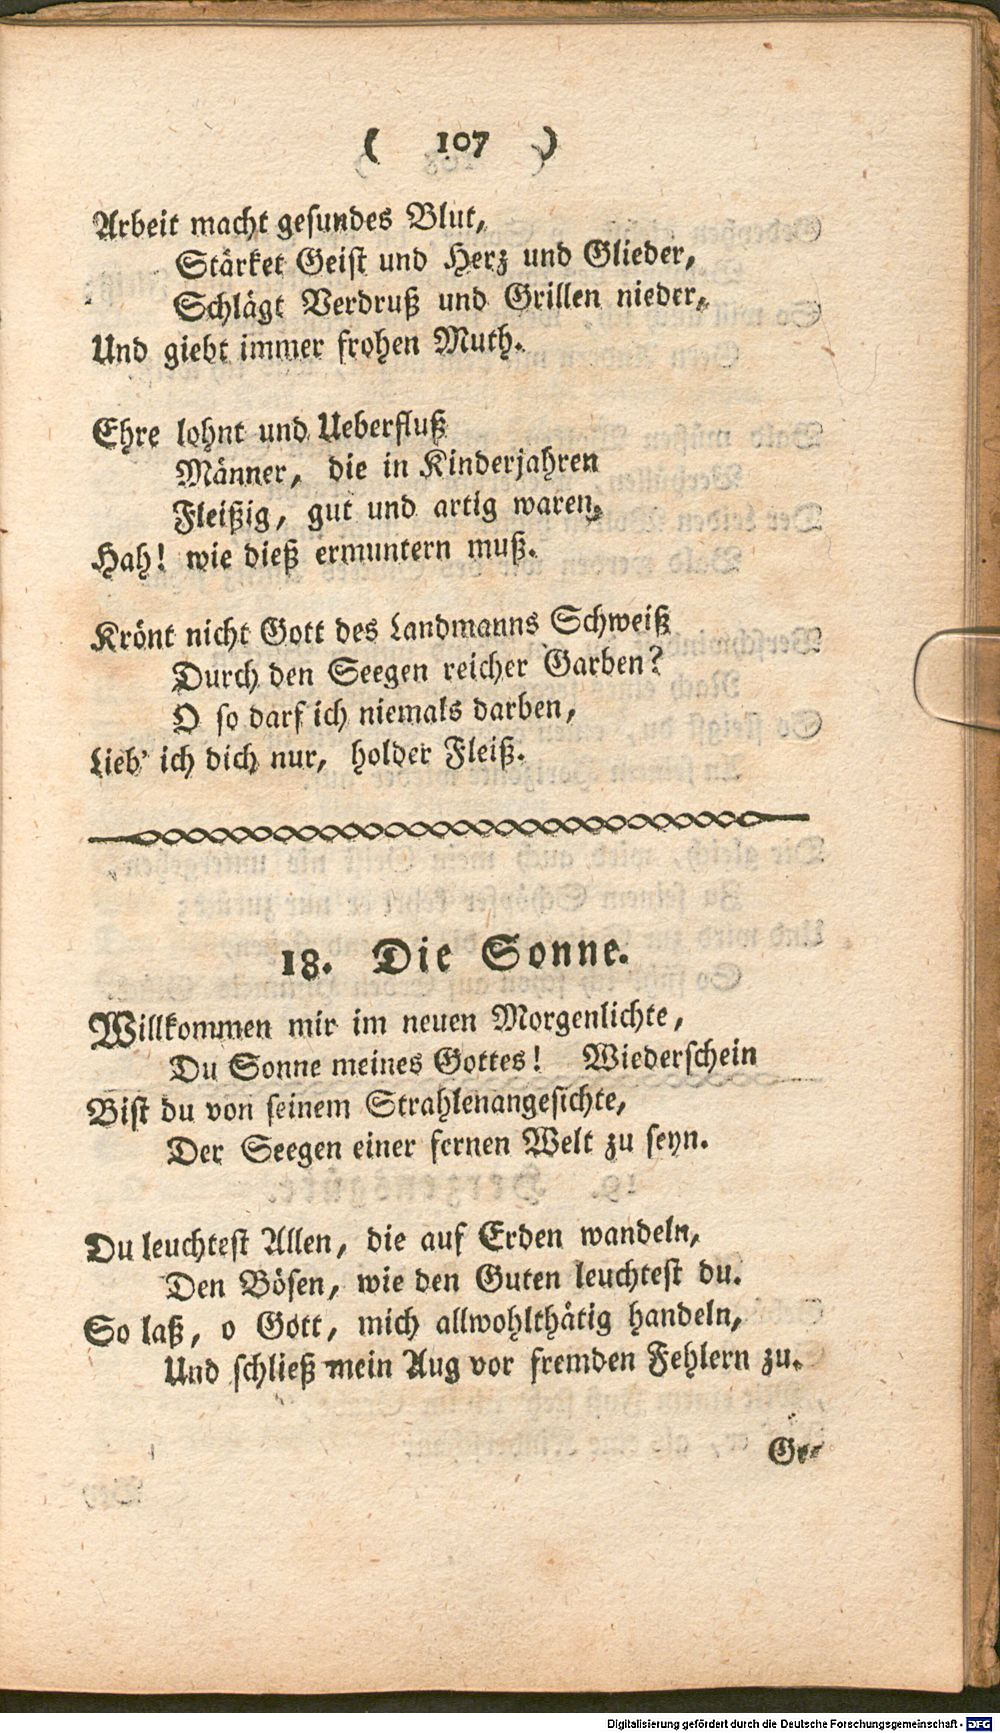 ( 107 )
Arbeit macht gesundes Blut,
Stärket Geist und Herz und Glieder,
Schlägt Verdruß und Grillen nieder,
Und giebt immer frohen Muth.
Ehre lohnt und Ueberfluß
Männer, die in Kinderjahren
Fleißig, gut und artig waren,
Hah! wie dieß ermuntern muß.
Krönt nicht Gott des Landmanns Schweiß
Durch den Seegen reicher Garben?
O so darf ich niemals darben,
Lieb' ich dich nur, holder Fleiß.
18. Die Sonne.
Willkommen mir im neuen Morgenlichte,
Du Sonne meines Gottes! Wiederschein
Bist du von seinem Strahlenangesichte,
Der Seegen einer fernen Welt zu seyn.
Du leuchtest Allen, die auf Erden wandeln,
Den Bösen, wie den Guten leuchtest du.
So laß, o Gott, mich allwohlthätig handeln,
Und schließ mein Aug vor fremden Fehlern zu.
Ge-
Digitalisierung gefördert durch die Deutsche Forschungsgemeinschaft - DFG